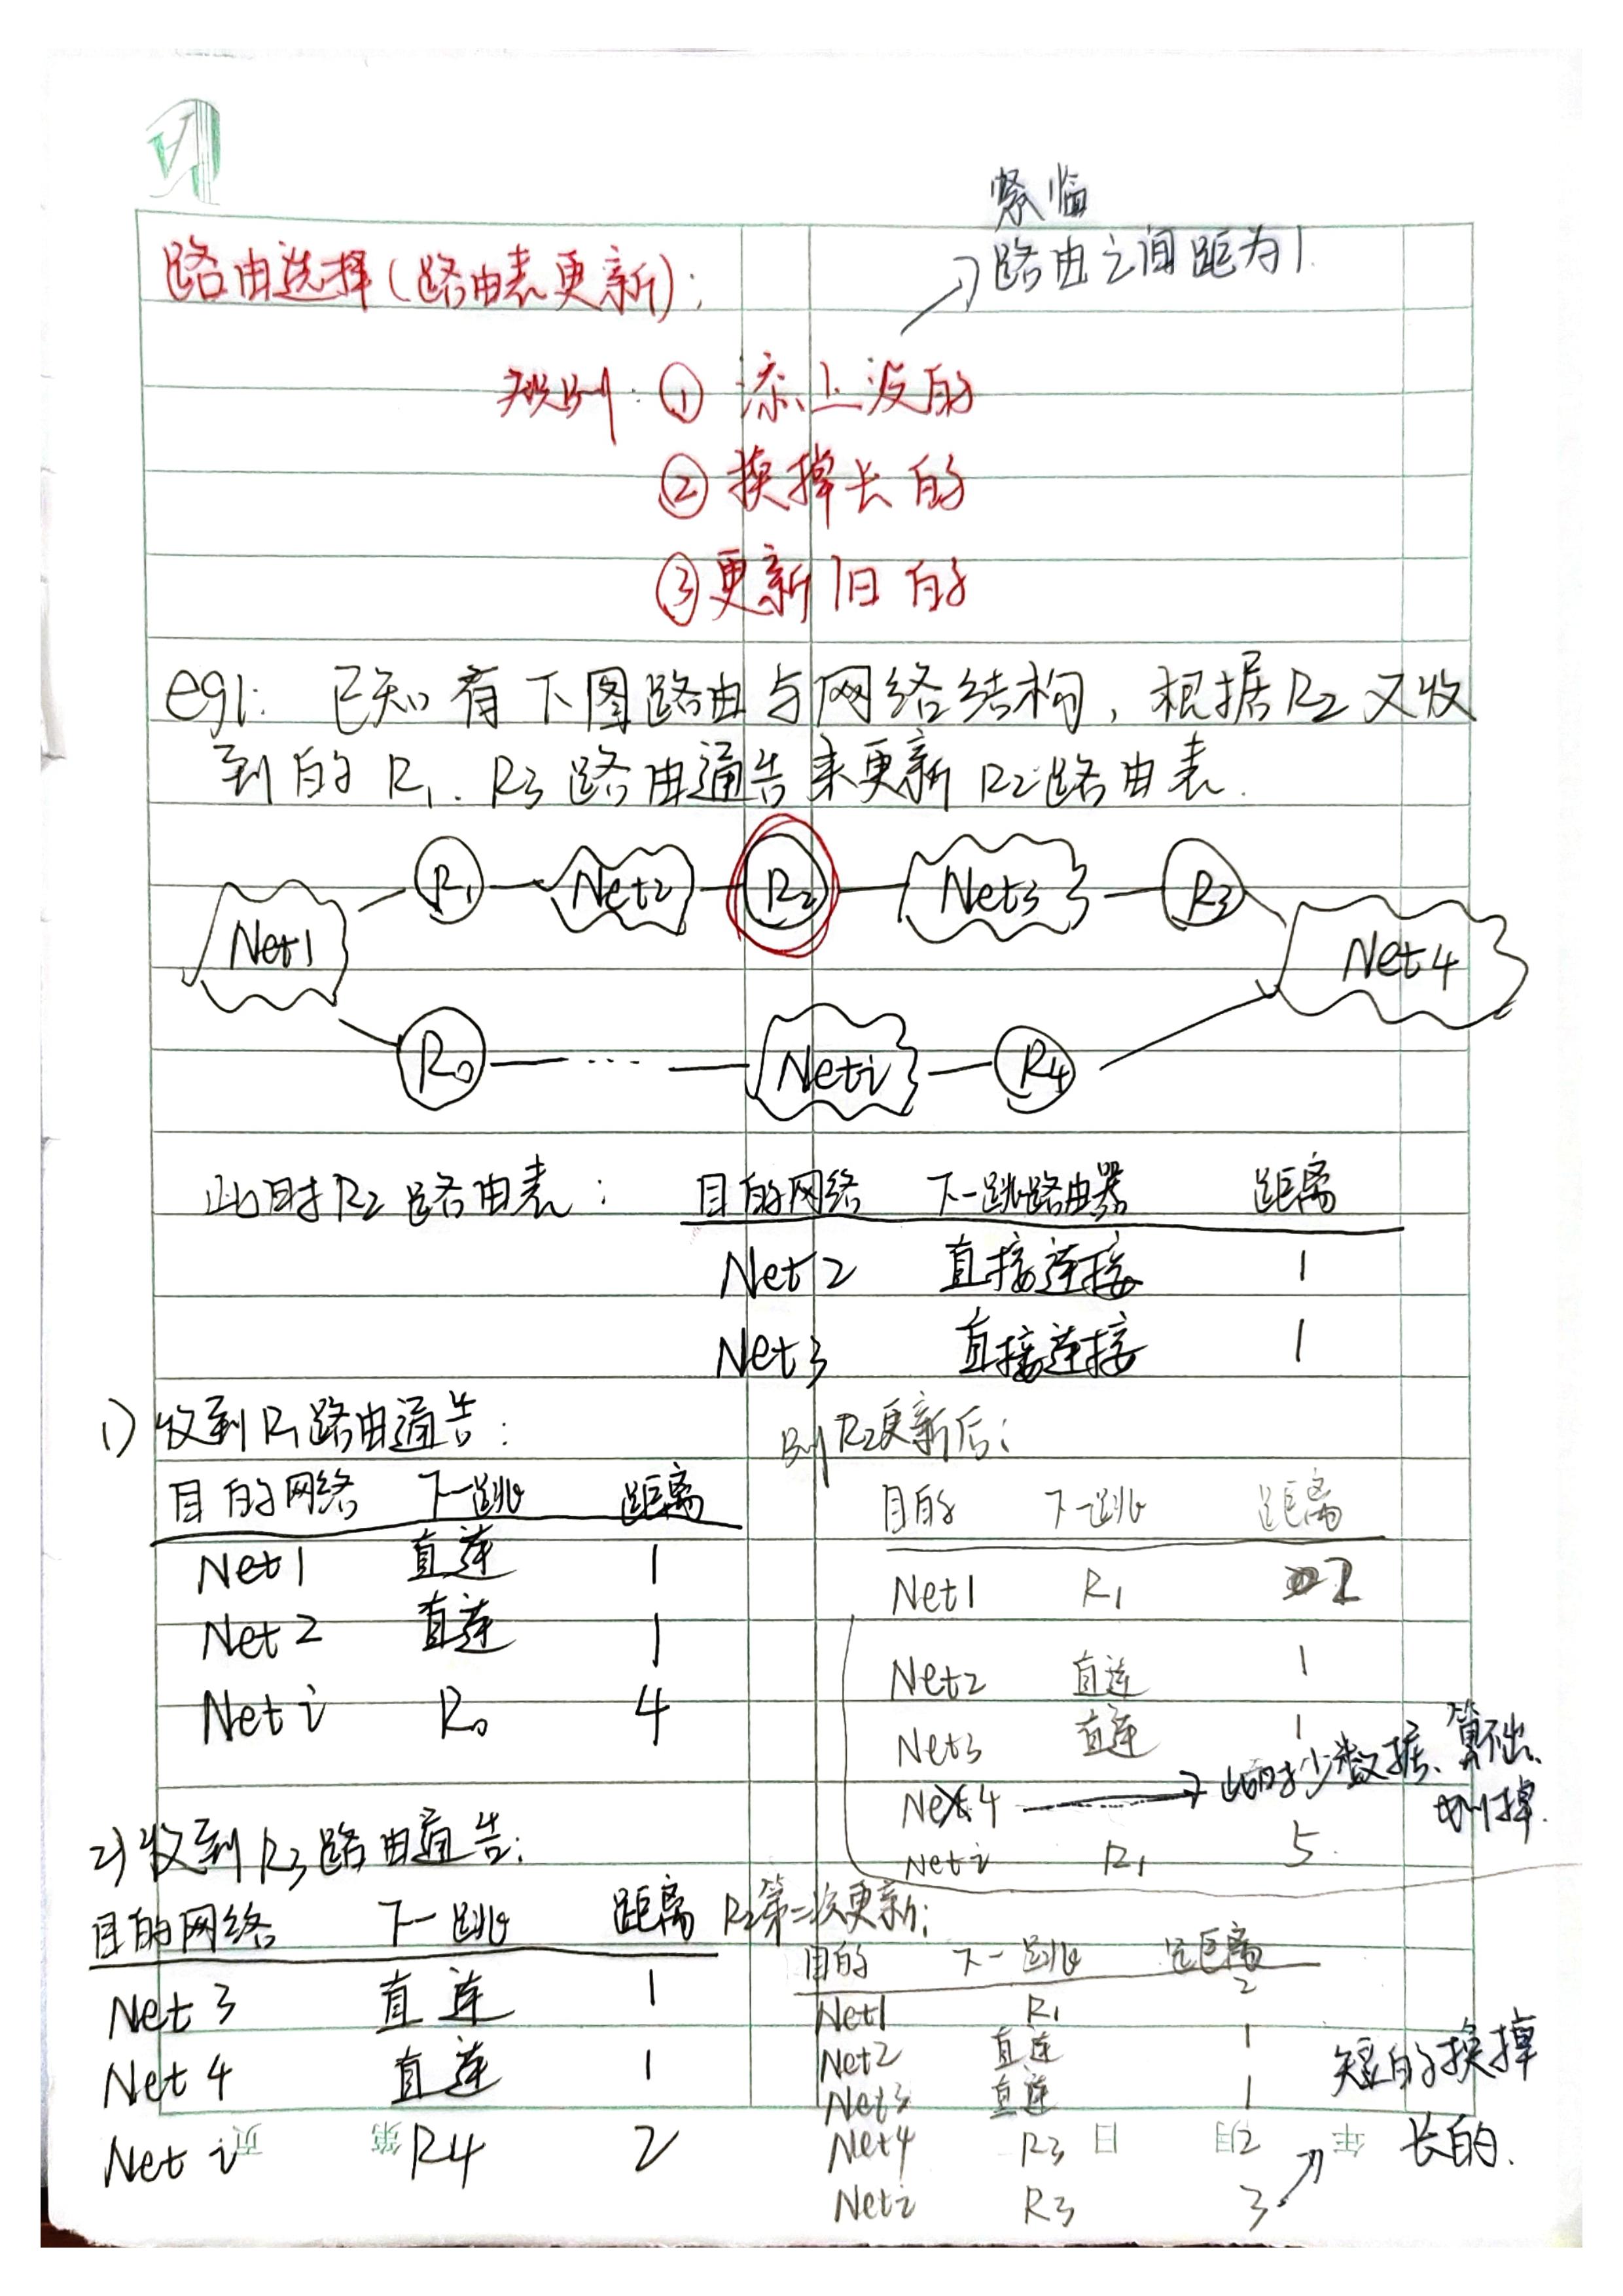 紧临
路由之间距为1.
路由选择(路由表更新):
规则: ① 添上没的
② 换掉长的
③ 更新旧的
eg1: 已知有下图路由与网络结构, 根据R2又收
到的R1. R3路由通告来更新R2路由表.
R1 Net2 R2 Net3 R3
Net1 Net4
R0 ... Neti R4
此时R2路由表: 目的网络 下一跳路由器 距离
Net2 直接连接 1
Net3 直接连接 1
1) 收到R1路由通告:
目的网络 下一跳 距离
Net1 直连 1
Net2 直连 1
Net i R0 4
则R2更新后:
目的 下一跳 距离
Net1 R1 2
Net2 直连 1
Net3 直连 1
Net4 此时少数据、算不出、
删掉.
Net i R1 5
2) 收到R3路由通告:
目的网络 下一跳 距离
Net3 直连 1
Net4 直连 1
Net i R4 2
R2第二次更新:
目的 下一跳 距离
Net1 R1 2
Net2 直连 1
Net3 直连 1
Net4 R3 2
Net i R3 3
短的换掉
长的.
年 月 日 第 页